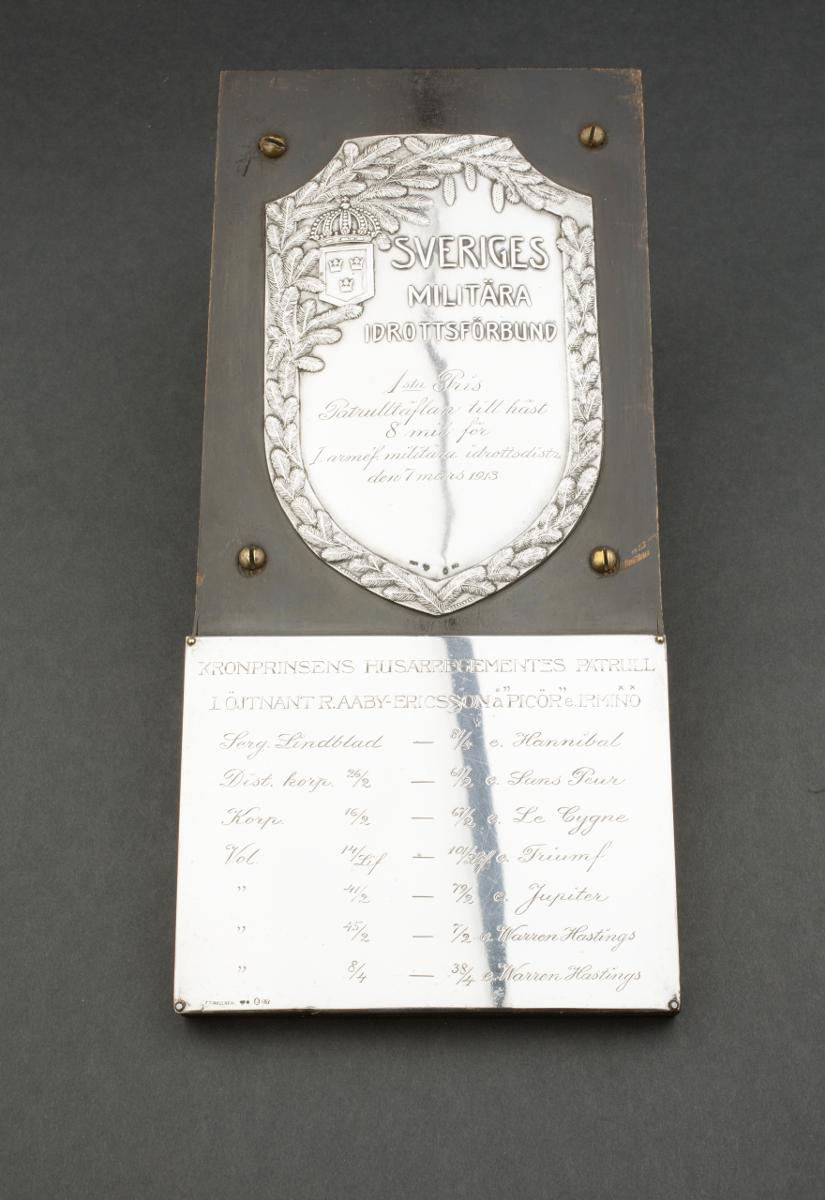 SVERIGES
MILITÄRA
IDROTTSFÖRBUND
1sta Pris
Patrulltäflan till häst
8 mil för
I. arméf. militära idrottsdistr.
den 7 mars 1913
KRONPRINSENS HUSARREGEMENTES PATRULL
LÖJTNANT R. AABY-ERICSSON å "PICÖR" e. IRMINÖ
Serg. Lindblad — 81/4 e. Hannibal
Dist. korp. 26/2 — 61/2 e. Sans Peur
Korp. 16/2 — 67/2 e. Le Cygne
Vol. 14/Lif — 101/Lif e. Triumf
" 41/2 — 79/2 e. Jupiter
" 45/2 — 7/2 e. Warren Hastings
" 8/4 — 38/4 e. Warren Hastings